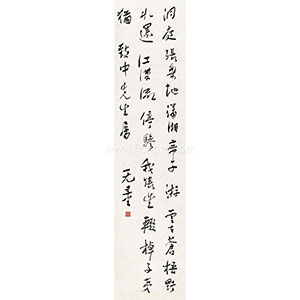 洞庭張樂地瀟湘帝子游雲去蒼梧野
水還江漢流停驂我悵望輟棹子夷
猶 中先生屬
无量